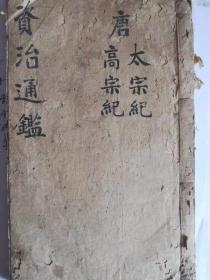 唐
太宗紀
高宗紀
資治通鑑